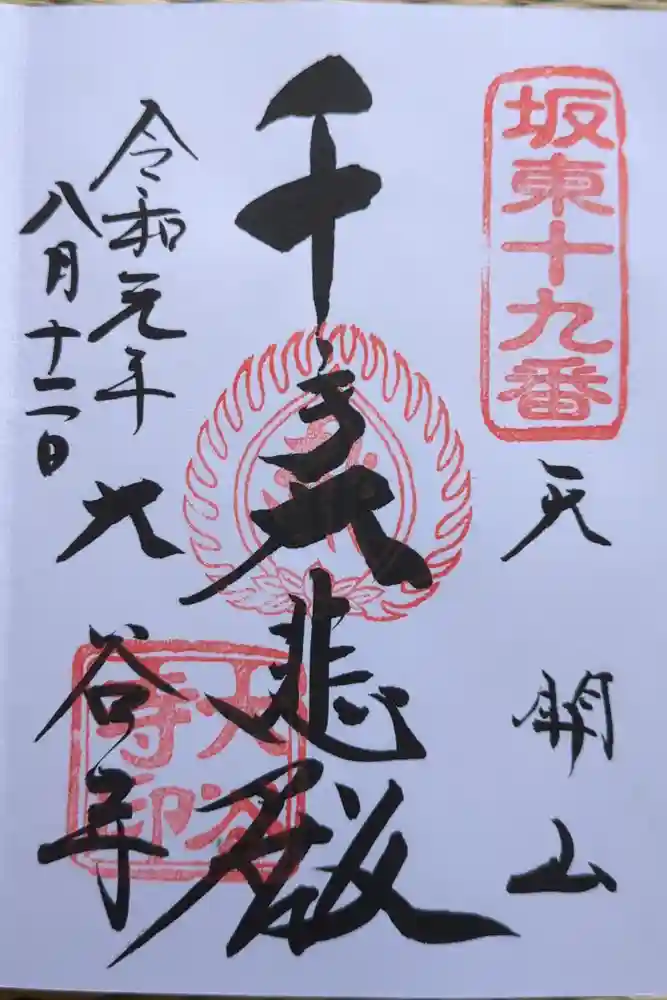 坂東十九番
天開山
千手大悲殿
令和元年
八月十二日
大谷寺
大谷
寺印